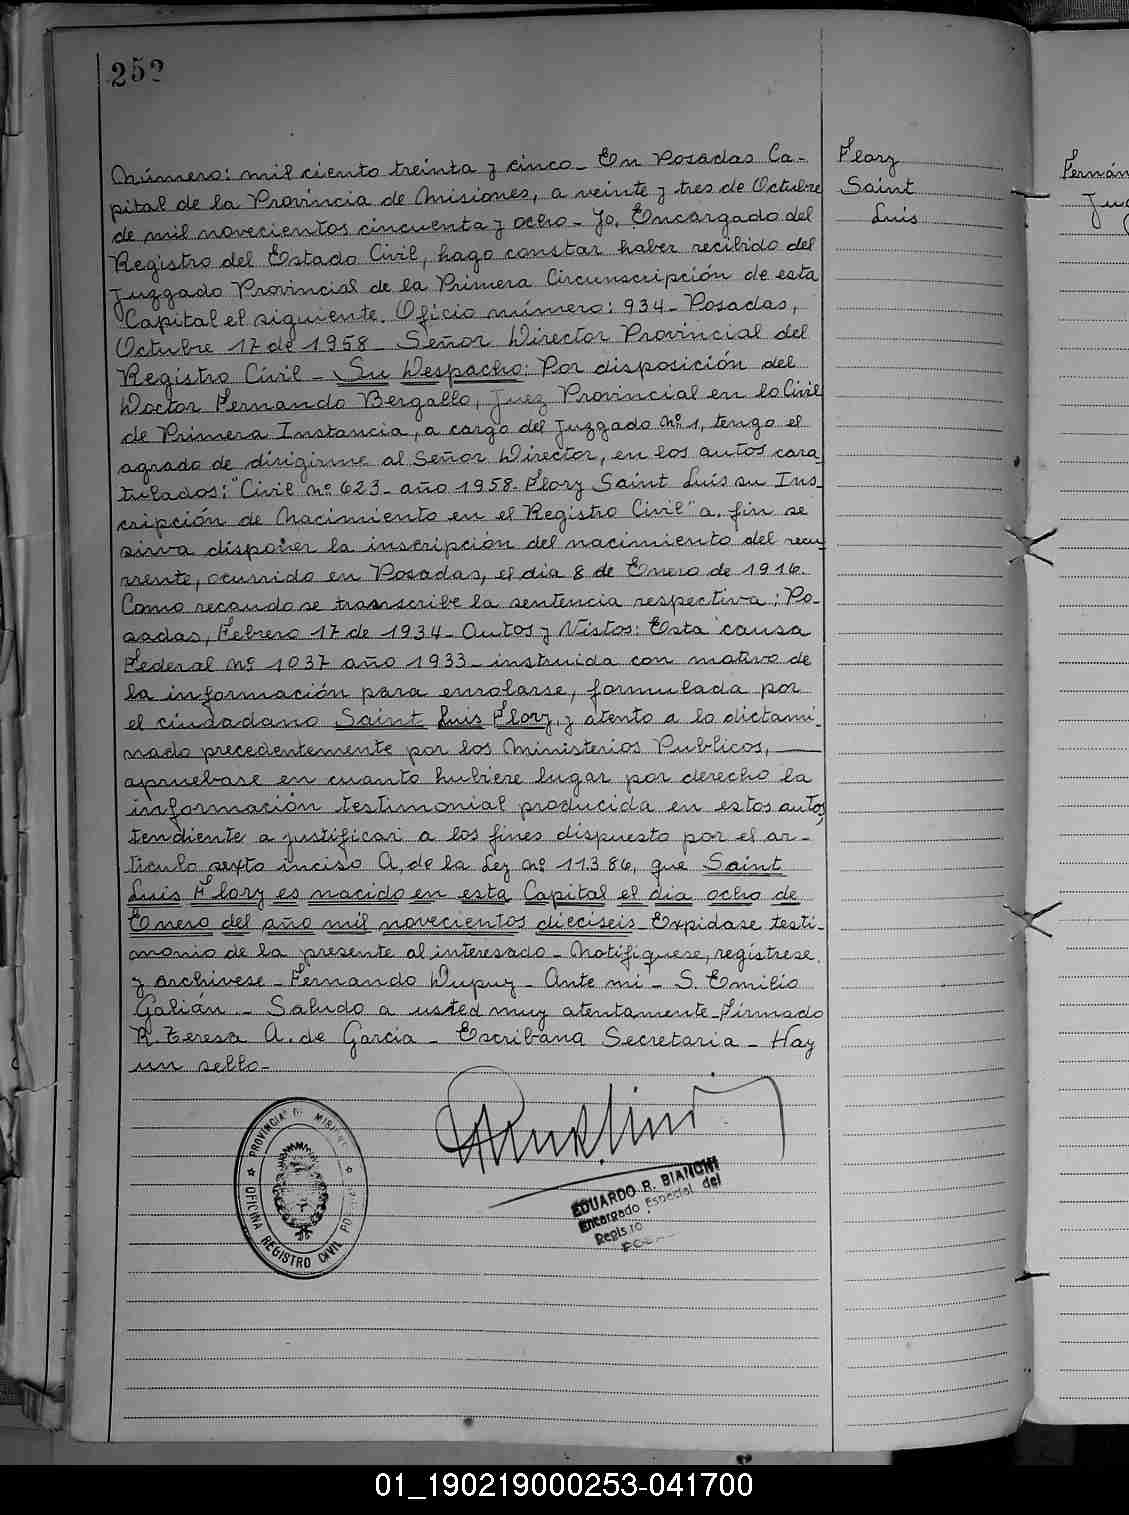 252
Número: mil ciento treinta y cinco_ En Posadas Ca-
pital de la Provincia de Misiones, a veinte y tres de Octubre
de mil novecientos cincuenta y ocho_ Yo, Encargado del
Registro del Estado Civil, hago constar haber recibido del
Juzgado Provincial de la Primera Circunscripción de esta
Capital el siguiente. Oficio número: 934_ Posadas,
Octubre 17 de 1958_ Señor Director Provincial del
Registro Civil_ Su Despacho: Por disposición del
Doctor Fernando Bergallo, Juez Provincial en lo Civil
de Primera Instancia, a cargo del Juzgado Nº 1, tengo el
agrado de dirigirme al Señor Director, en los autos cara_
tulados: "Civil nº 623_ año 1958_ Flory Saint Luis su Ins_
cripción de Nacimiento en el Registro Civil" a fin se
sirva disponer la inscripción del nacimiento del recu_
rrente, ocurrido en Posadas, el dia 8 de Enero de 1916.
Como recaudo se transcribe la sentencia respectiva: Po-
sadas, Febrero 17 de 1934_ Autos y Vistos: Esta causa
Federal Nº 1037 año 1933_ instruida con motivo de
la información para enrolarse, formulada por
el ciudadano Saint Luis Flory, y atento a lo dictami_
nado precedentemente por los Ministerios Publicos,
apruebase en cuanto hubiere lugar por derecho la
información testimonial producida en estos autos,
tendiente a justificar a los fines dispuesto por el ar-
tículo sexto inciso A, de la Ley nº 11386, que Saint
Luis Flory es nacido en esta Capital el dia ocho de
Enero del año mil novecientos dieciseis_ Expidase testi_
monio de la presente al interesado_ Notifiquese, registrese,
y archivese_ Fernando Dupuy_ Ante mi_ S. Emilio
Galián_ Saludo a usted muy atentamente_ Firmado
R. Teresa A. de Garcia_ Escribana Secretaria_ Hay
un sello_
Flory
Saint
Luis
PROVINCIA DE MISIONES
OFICINA REGISTRO CIVIL
EDUARDO R. BIANCHI
Encargado Especial del
Registro
01_190219000253-041700